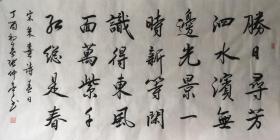 勝日尋芳
泗水濱無
邊光景一
時新等閑
識得東風
面萬紫千
紅總是春
宋朱熹詩春日